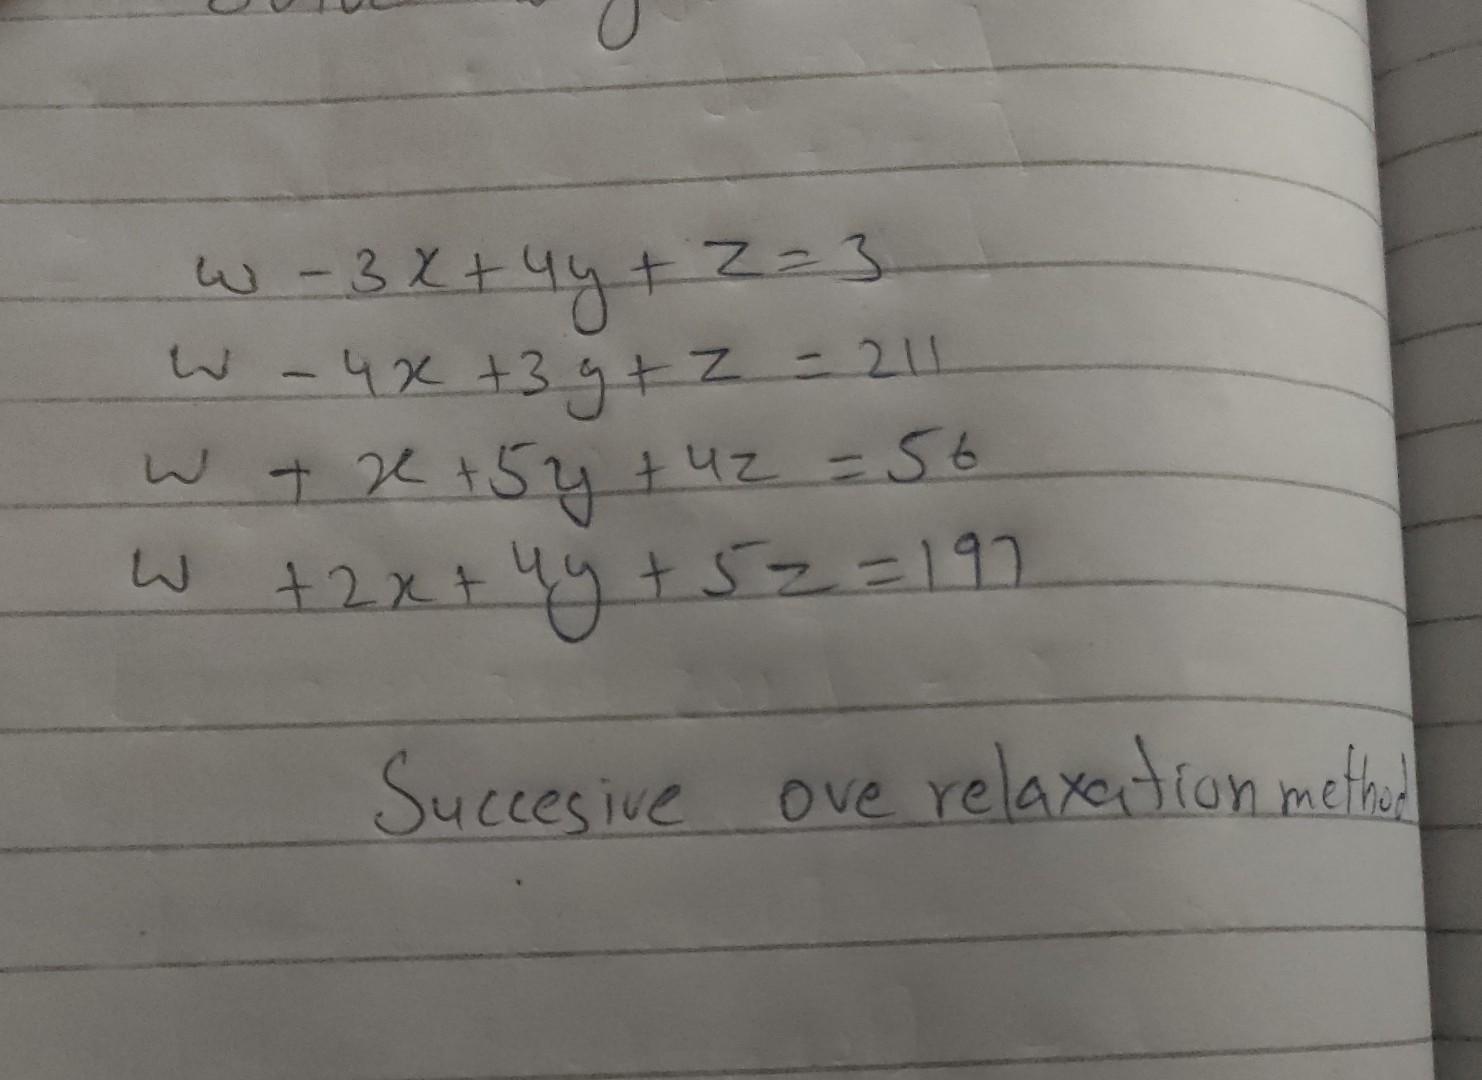 w - 3x + 4y + z = 3
w - 4x + 3y + z = 211
w + x + 5y + 4z = 56
w + 2x + 4y + 5z = 197
Succesive ove relaxation method